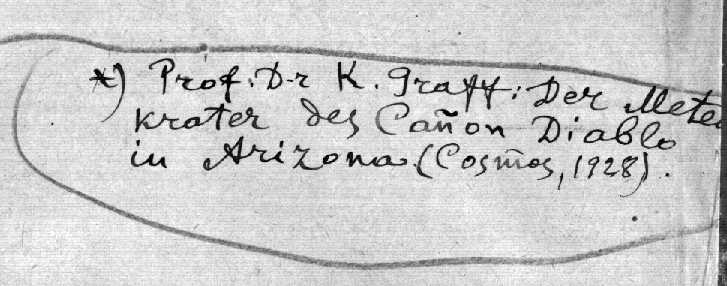 *) Prof. Dr K. Graff: Der Mete
krater des Cañon Diablo
in Arizona (Cosmos, 1928).